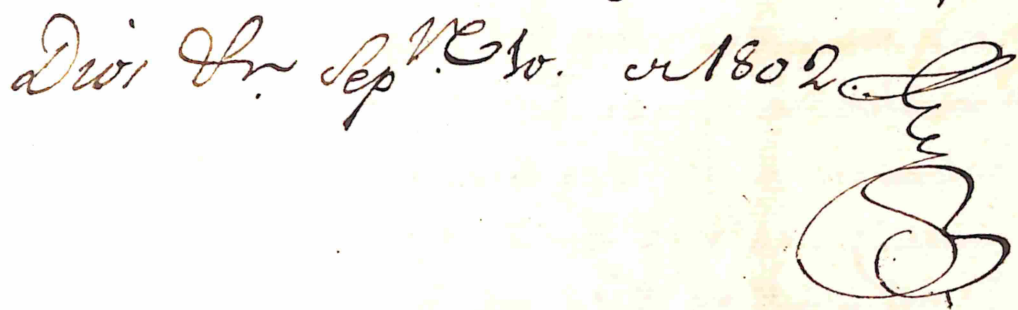 Dios &r. Sep.re 30. de 1802